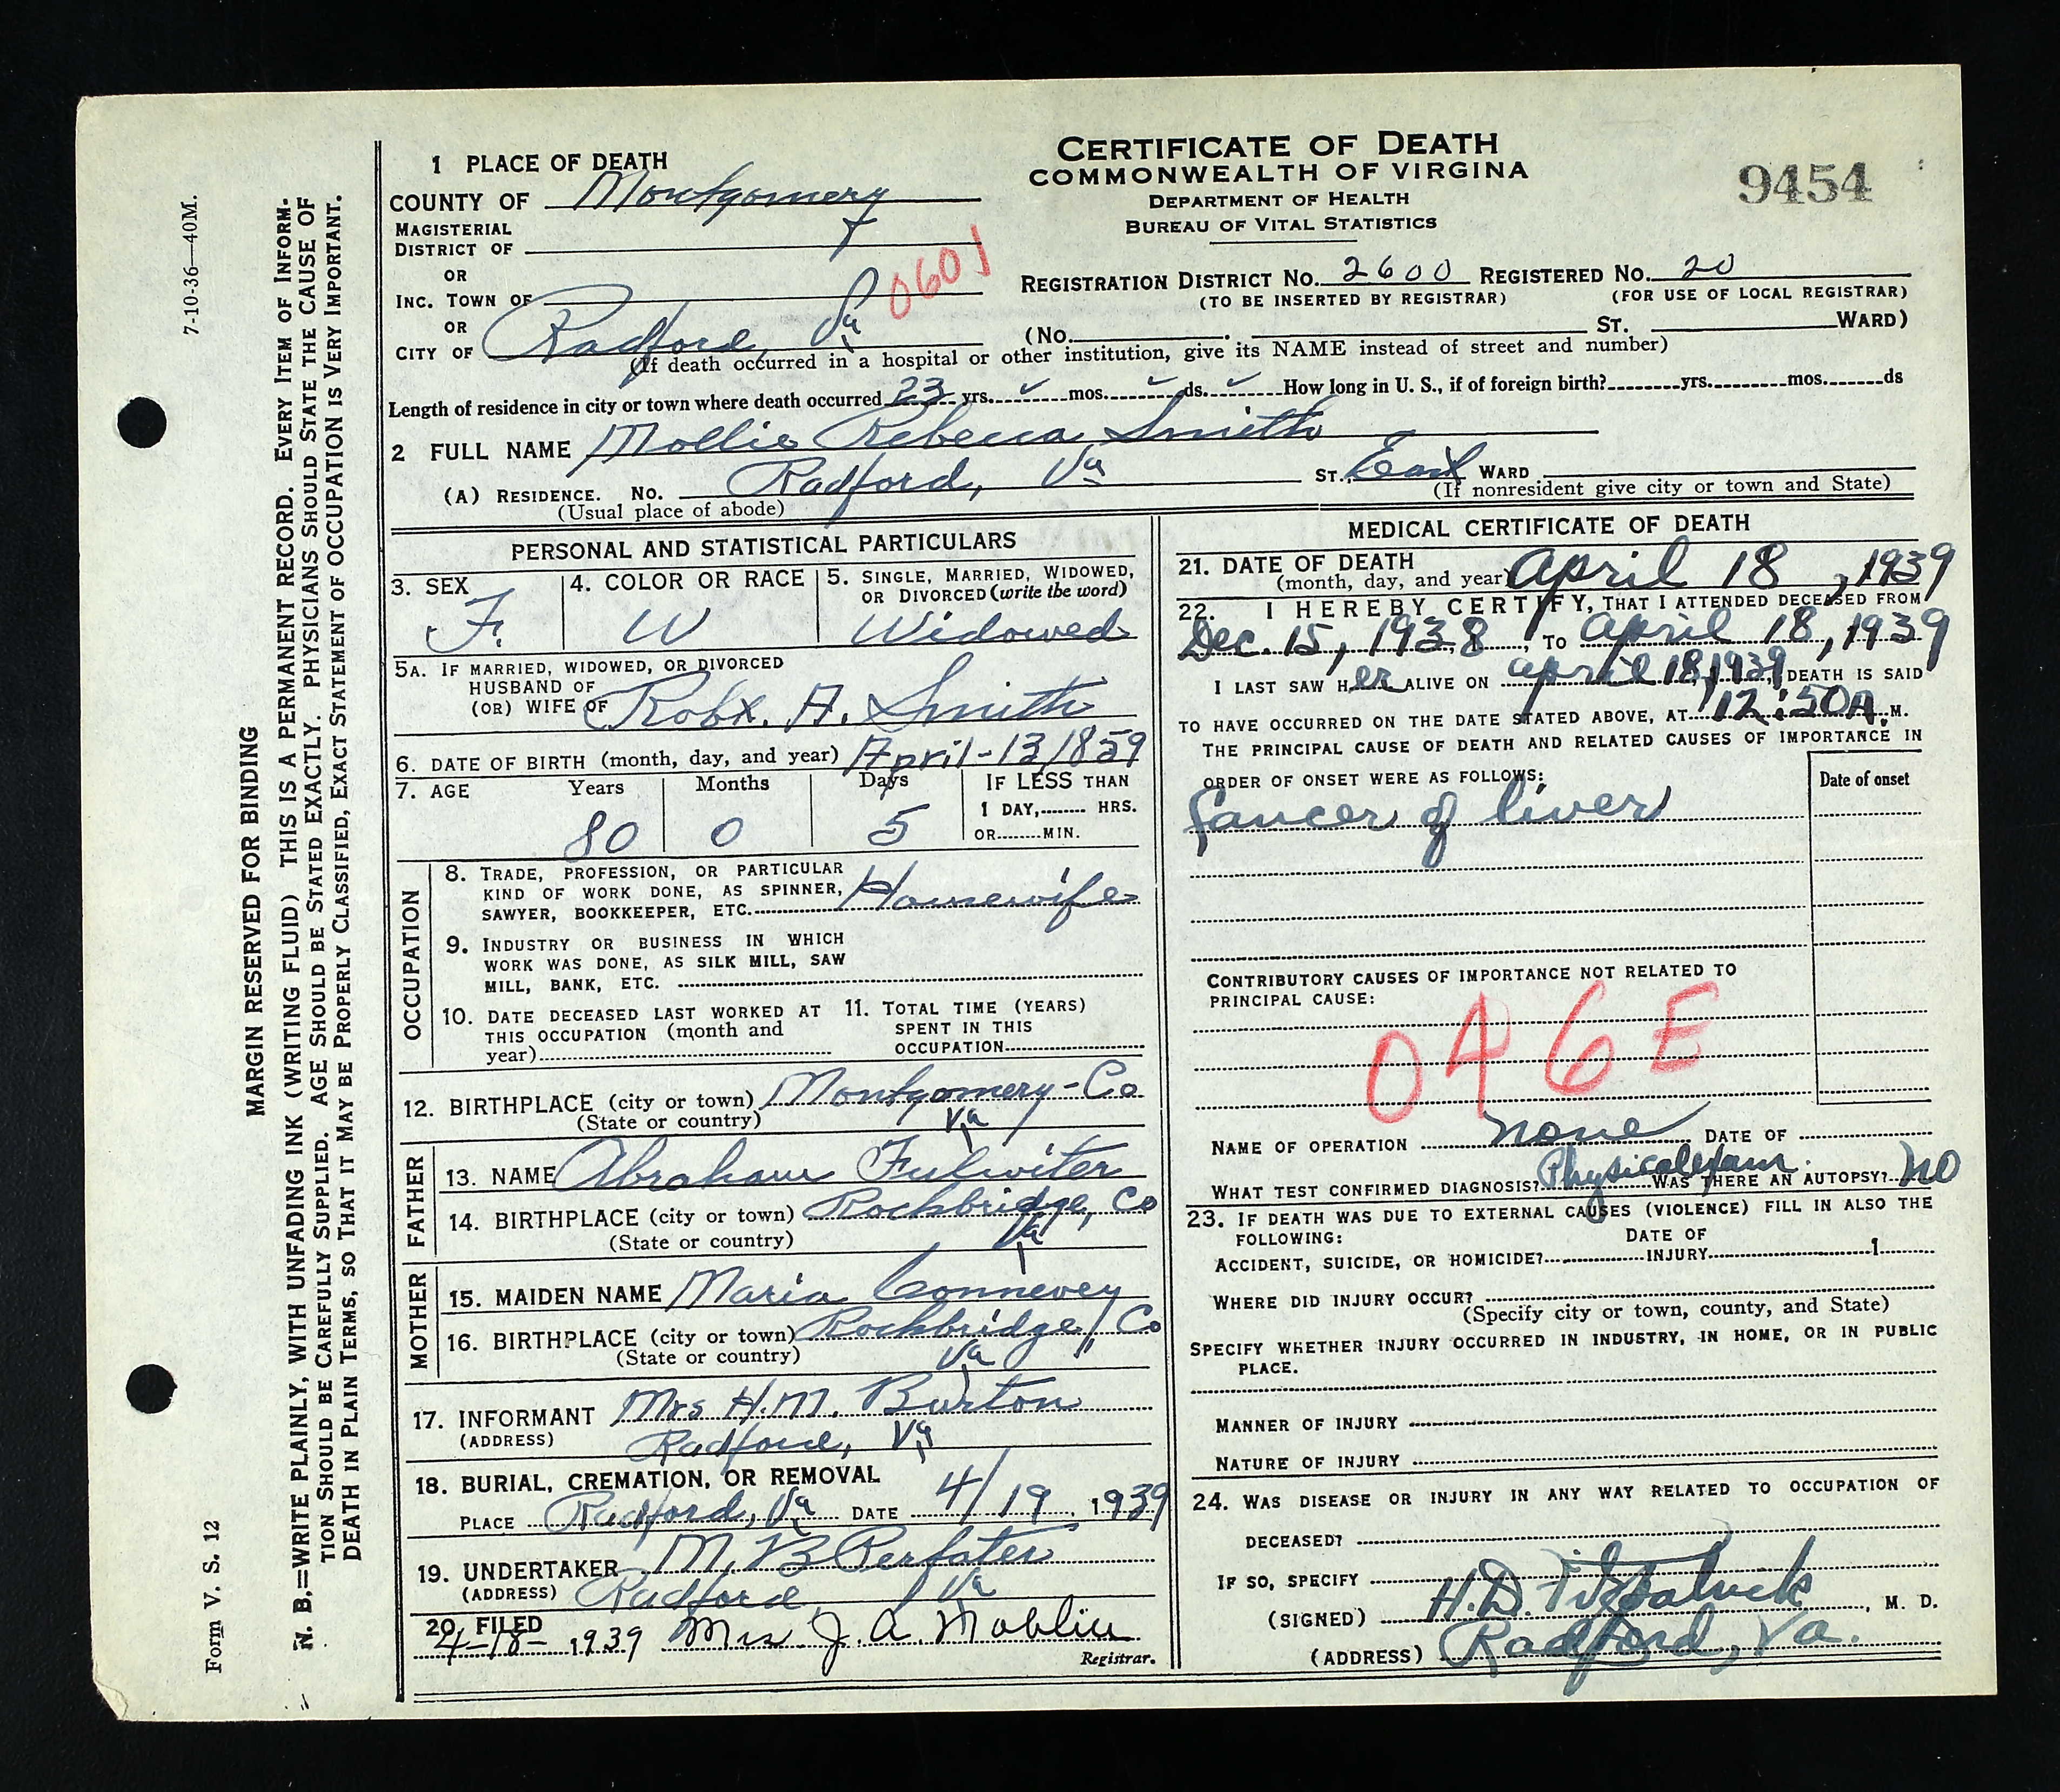 7-10-36—40M.
MARGIN RESERVED FOR BINDING
N. B.—WRITE PLAINLY, WITH UNFADING INK (WRITING FLUID) THIS IS A PERMANENT RECORD. EVERY ITEM OF INFORM-
TION SHOULD BE CAREFULLY SUPPLIED. AGE SHOULD BE STATED EXACTLY. PHYSICIANS SHOULD STATE THE CAUSE OF
DEATH IN PLAIN TERMS, SO THAT IT MAY BE PROPERLY CLASSIFIED, EXACT STATEMENT OF OCCUPATION IS VERY IMPORTANT.
Form V. S. 12
CERTIFICATE OF DEATH
COMMONWEALTH OF VIRGINA
DEPARTMENT OF HEALTH
BUREAU OF VITAL STATISTICS
9454
1 PLACE OF DEATH
COUNTY OF Montgomery
MAGISTERIAL
DISTRICT OF
OR
INC. TOWN OF
0601
OR
CITY OF Radford, Va
REGISTRATION DISTRICT NO. 2600 REGISTERED NO. 20
(TO BE INSERTED BY REGISTRAR) (FOR USE OF LOCAL REGISTRAR)
(No. ST. WARD)
(If death occurred in a hospital or other institution, give its NAME instead of street and number)
Length of residence in city or town where death occurred 23 yrs. mos. ds. How long in U. S., if of foreign birth? yrs. mos. ds
2 FULL NAME Mollie Rebecca Smith
(A) RESIDENCE. NO. Radford, Va ST. East WARD
(Usual place of abode) (If nonresident give city or town and State)
PERSONAL AND STATISTICAL PARTICULARS
3. SEX 4. COLOR OR RACE 5. SINGLE, MARRIED, WIDOWED,
OR DIVORCED (write the word)
F. W Widowed
5A. IF MARRIED, WIDOWED, OR DIVORCED
HUSBAND OF
(OR) WIFE OF Robt. A. Smith
6. DATE OF BIRTH (month, day, and year) April-13/1859
7. AGE Years Months Days IF LESS THAN
1 DAY, HRS.
OR MIN.
80 0 5
OCCUPATION
8. TRADE, PROFESSION, OR PARTICULAR
KIND OF WORK DONE, AS SPINNER,
SAWYER, BOOKKEEPER, ETC. Housewife
9. INDUSTRY OR BUSINESS IN WHICH
WORK WAS DONE, AS SILK MILL, SAW
MILL, BANK, ETC.
10. DATE DECEASED LAST WORKED AT
THIS OCCUPATION (month and
year)
11. TOTAL TIME (YEARS)
SPENT IN THIS
OCCUPATION
12. BIRTHPLACE (city or town) Montgomery-Co
(State or country) Va
FATHER
13. NAME Abraham Fulwiter
14. BIRTHPLACE (city or town) Rockbridge, Co
(State or country) Va
MOTHER
15. MAIDEN NAME Maria Connevey
16. BIRTHPLACE (city or town) Rockbridge, Co
(State or country) Va
17. INFORMANT Mrs H.M. Burton
(ADDRESS) Radford, Va
18. BURIAL, CREMATION, OR REMOVAL
PLACE Radford, Va DATE 4/19, 1939
19. UNDERTAKER M. B Perfater
(ADDRESS) Radford Va
20. FILED
4-18- 1939 Mrs J. A. Noblin
Registrar.
MEDICAL CERTIFICATE OF DEATH
21. DATE OF DEATH
(month, day, and year) April 18, 1939
22. I HEREBY CERTIFY, THAT I ATTENDED DECEASED FROM
Dec. 15, 1938, TO April 18, 1939
I LAST SAW HER ALIVE ON April 18, 1939, DEATH IS SAID
TO HAVE OCCURRED ON THE DATE STATED ABOVE, AT 12:50A.M.
THE PRINCIPAL CAUSE OF DEATH AND RELATED CAUSES OF IMPORTANCE IN
ORDER OF ONSET WERE AS FOLLOWS: Date of onset
Cancer of liver
CONTRIBUTORY CAUSES OF IMPORTANCE NOT RELATED TO
PRINCIPAL CAUSE:
046E
NAME OF OPERATION none DATE OF
WHAT TEST CONFIRMED DIAGNOSIS? Physical exam. WAS THERE AN AUTOPSY? no
23. IF DEATH WAS DUE TO EXTERNAL CAUSES (VIOLENCE) FILL IN ALSO THE
FOLLOWING: DATE OF
ACCIDENT, SUICIDE, OR HOMICIDE? INJURY 1
WHERE DID INJURY OCCUR?
(Specify city or town, county, and State)
SPECIFY WHETHER INJURY OCCURRED IN INDUSTRY, IN HOME, OR IN PUBLIC
PLACE.
MANNER OF INJURY
NATURE OF INJURY
24. WAS DISEASE OR INJURY IN ANY WAY RELATED TO OCCUPATION OF
DECEASED?
IF SO, SPECIFY
(SIGNED) H.D. Fitzpatrick, M. D.
(ADDRESS) Radford, Va.